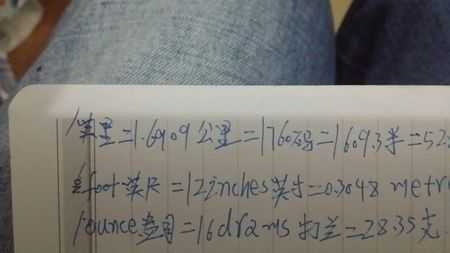 1英里=1.6909公里=1760码=1609.3米=528
foot英尺=12inches英寸=0.3048 metr
1ounce盎司=16drams打兰=28.35克